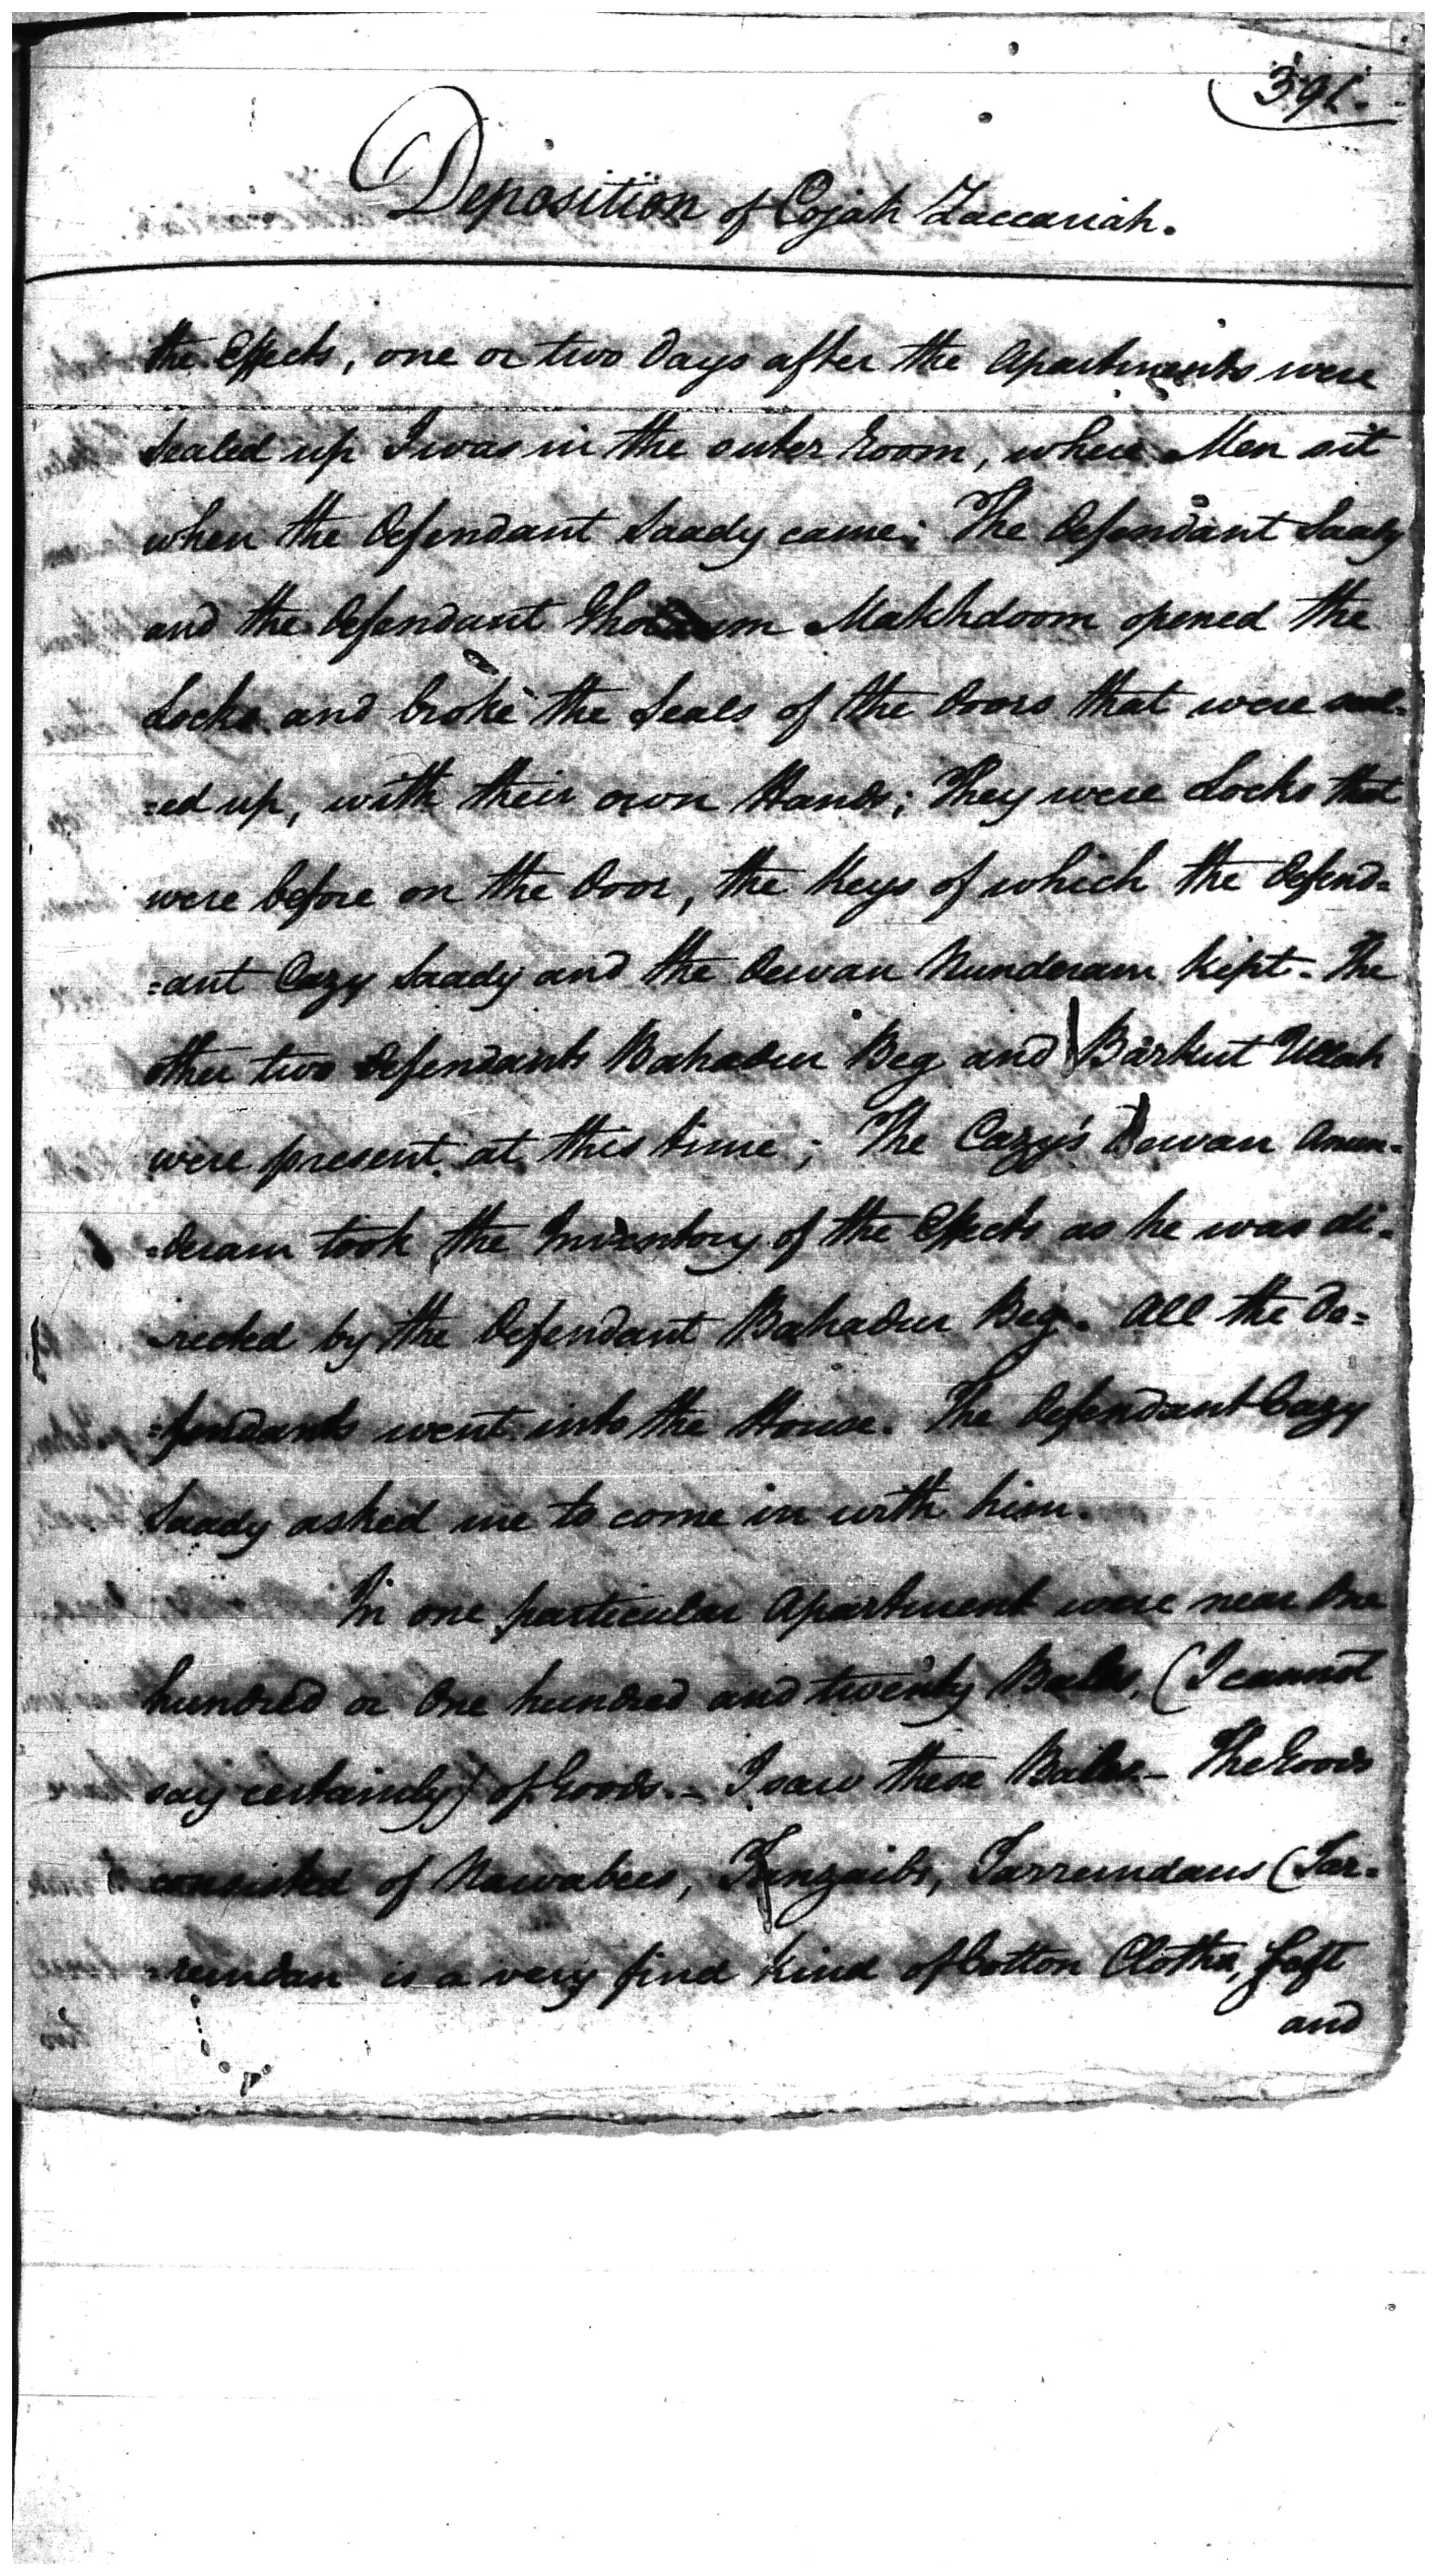 391.
Deposition of Cojah Zaccariah.
the Effects, one or two days after the Apartments were
Sealed up I was in the outer Room, where Men sit
when the Defendant Saady came; The Defendant Saady
and the Defendant Gholaum Makhdoom opened the
Locks and broke the Seals of the Doors that were seal=
=ed up, with their own Hands; They were Locks that
were before on the Door, the Keys of which the Defend=
=ant Cazy Saady and the Dewan Nunderam kept. The
other two Defendants Bahadur Beg and Barkut Ullah
were present at this time; The Cazy's Dewan Anun=
=deram took the Inventory of the Effects as he was di=
=rected by the Defendant Bahadur Beg. All the De=
=fendants went into the House. The Defendant Cazy
Saady asked me to come in with him.
In one particular Apartment were near One
hundred or One hundred and twenty Bales, (I cannot
say certainly) of Goods. - I saw these Bales - The Goods
consisted of Nawabees, Tanzaibs, Tarrendans (Tar=
=rendan is a very find kind of Cotton Cloths, Saft
and